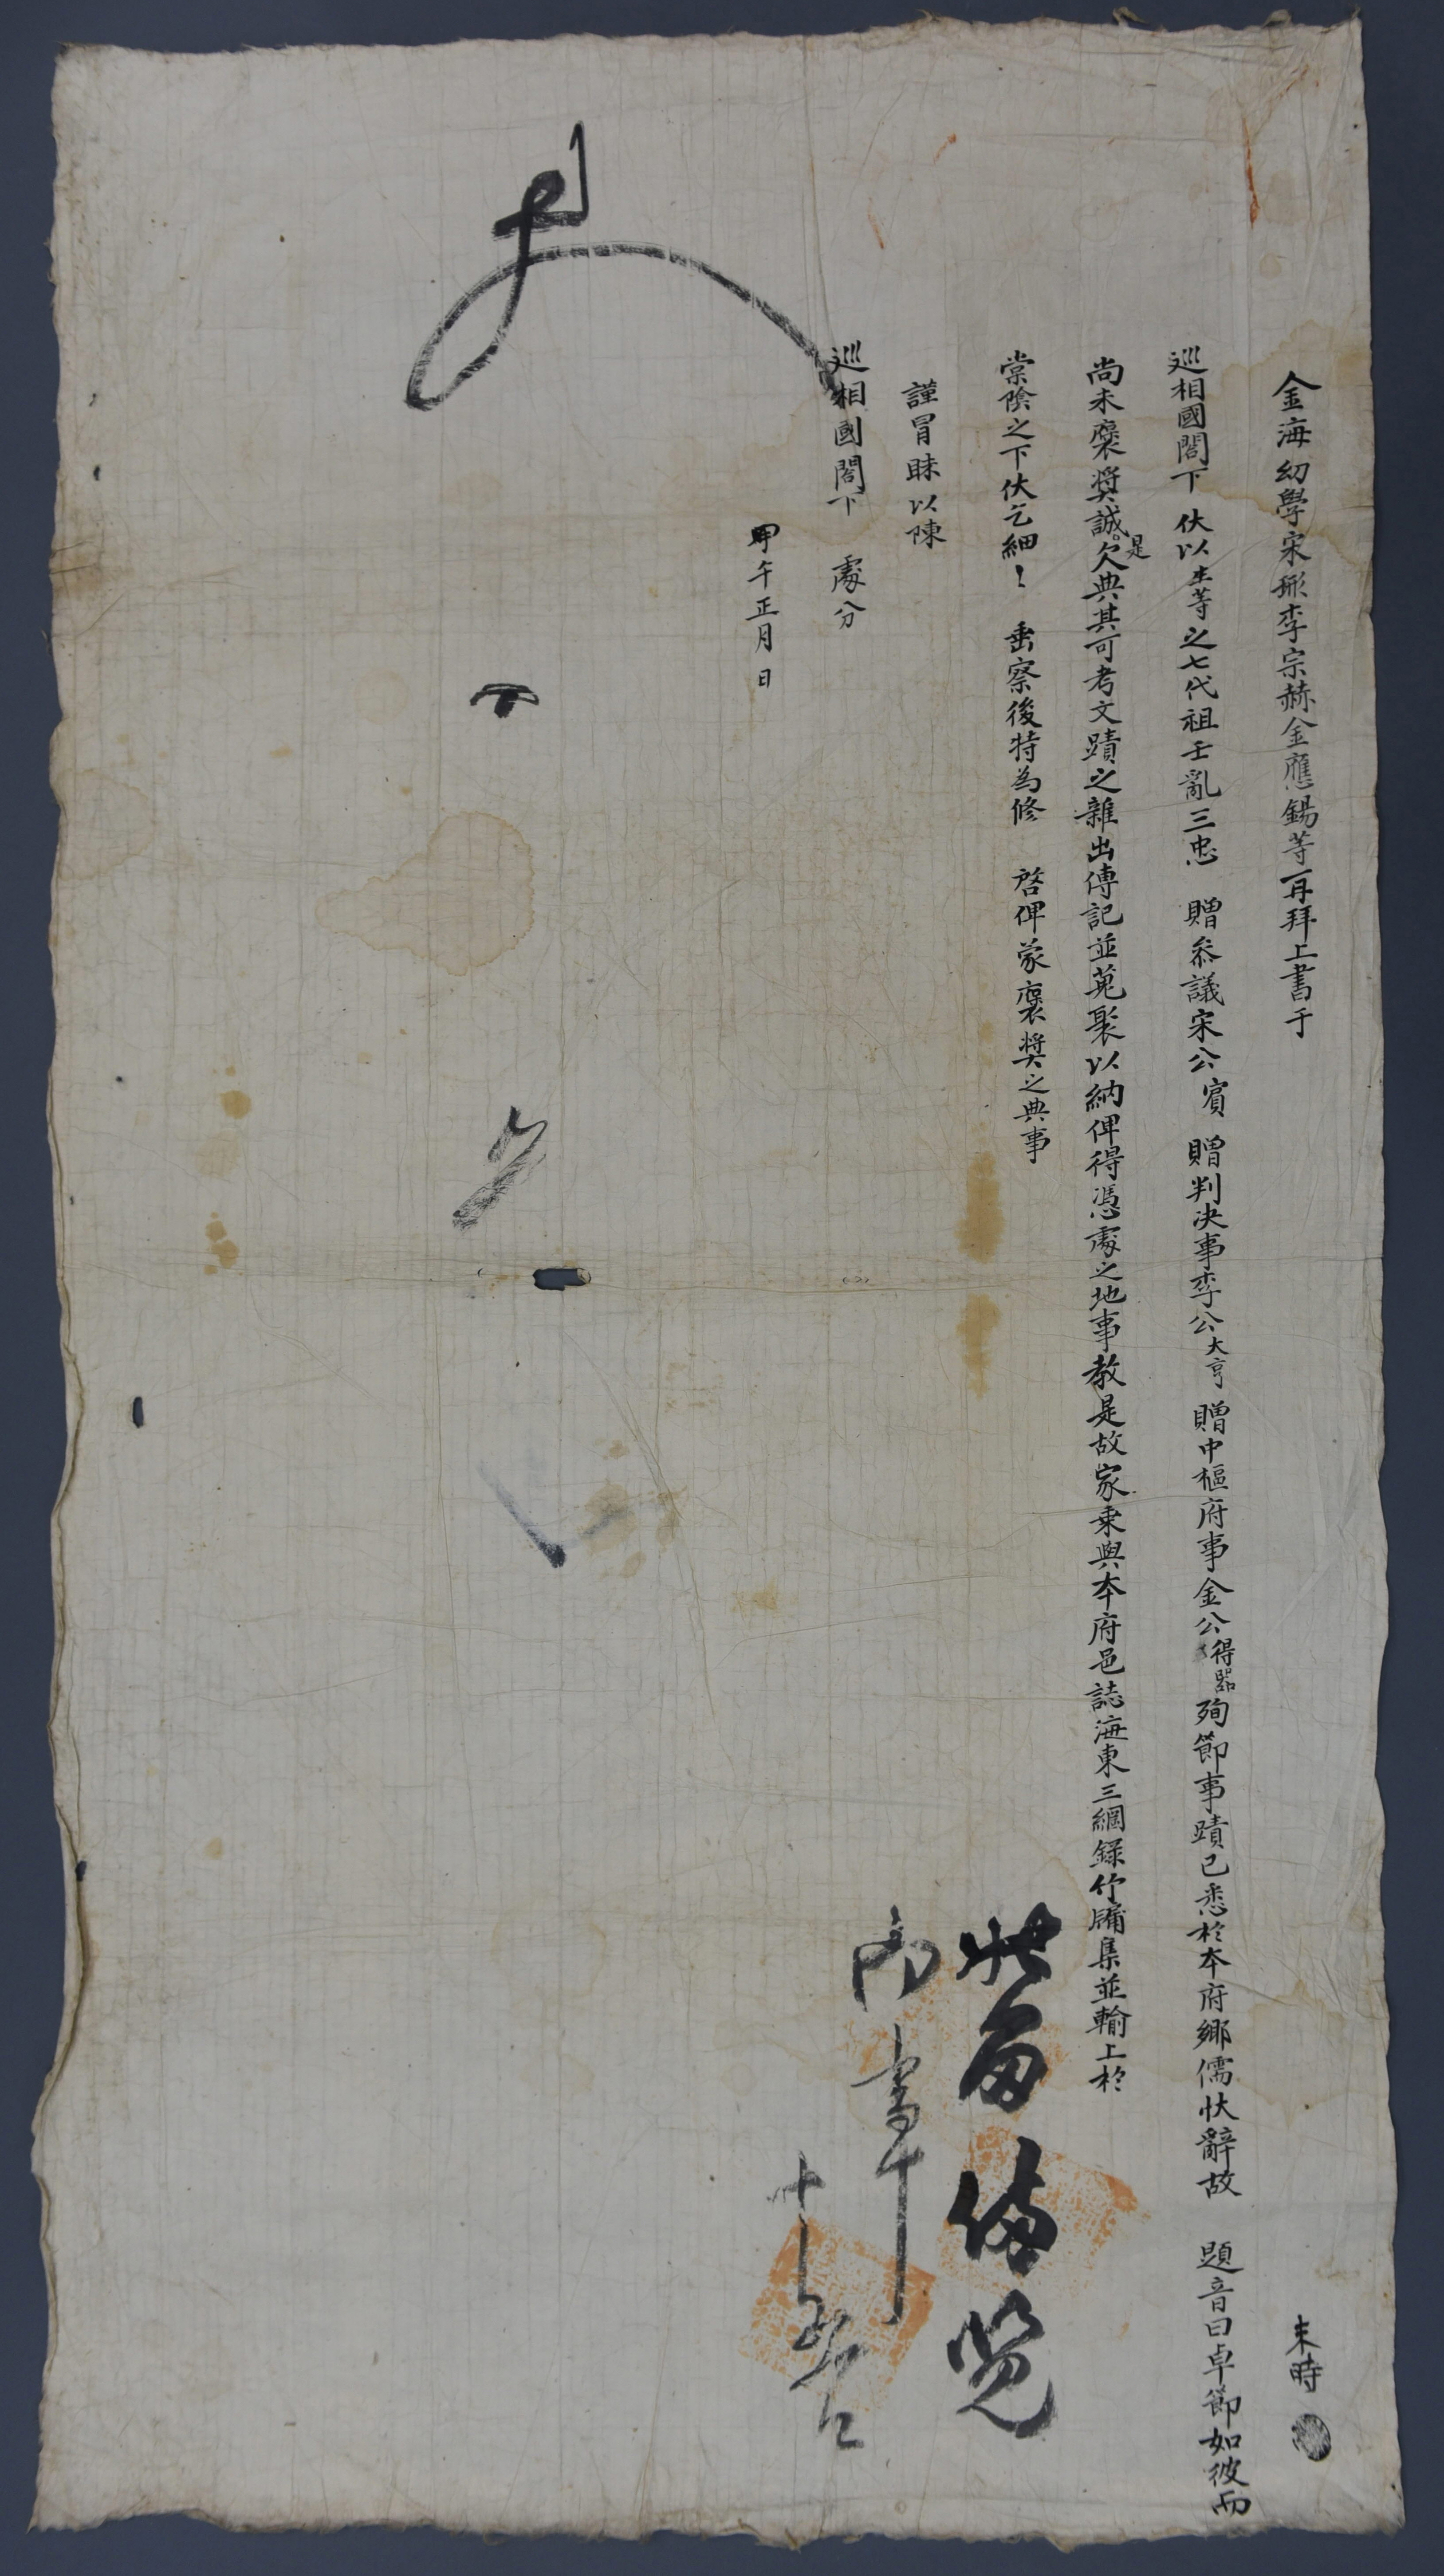 金海幼學宋彤李宗赫金應錫等再拜上書于
未時
巡相國閤下 伏以生等之七代祖壬亂三忠 贈參議宋公賓 贈判決事李公大亨 贈中樞府事金公得器殉節事蹟已悉於本府鄉儒狀辭故 題音曰卓節如彼而
尚未褒奬誠是欠典其可考文蹟之雜出傳記並蒐聚以納俾得憑處之地事教是故家乘與本府邑誌海東三綱錄竹牖集並輸上於
棠陰之下伏乞細〻 垂察後特為修 啓俾蒙褒奬之典事
謹冒昧以陳
巡相國閤下 處分
甲午正月 日
狀留備覽
向事
十五日